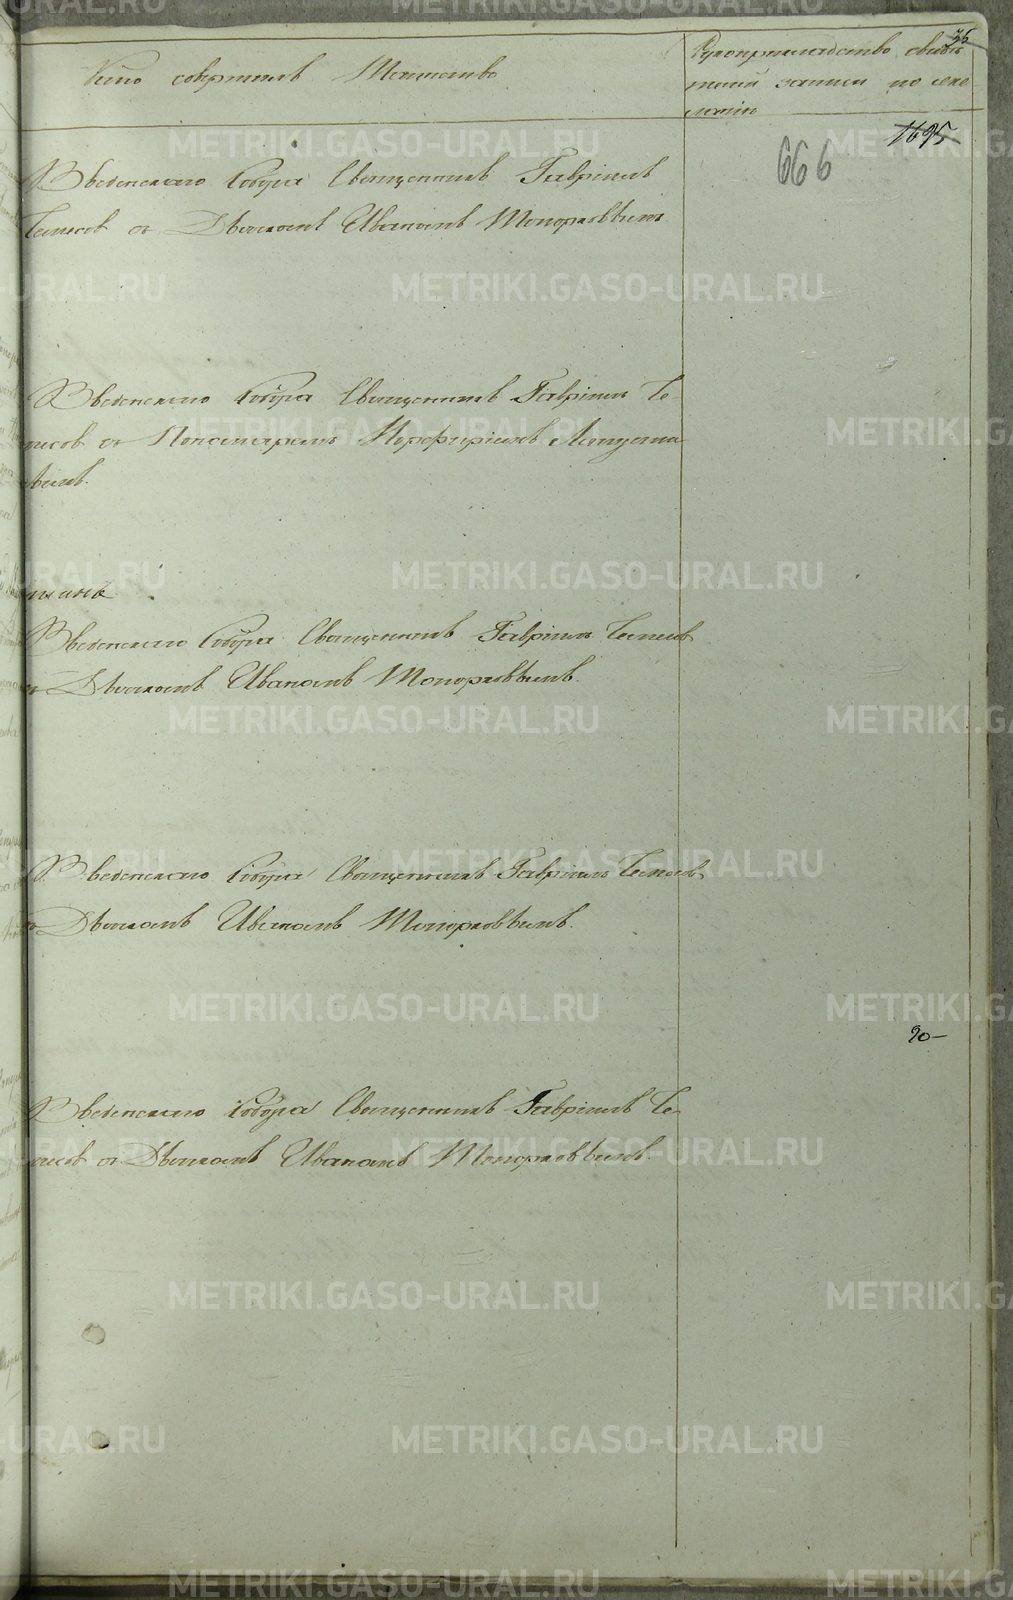 Кто совершалъ Таинство
Рукоприкладство свидѣ
телей записи по жела
нію
76
1695
666
Введенскаго Собора Священникъ Гавріилъ
съ Дьякономъ Иваномъ Топорковымъ
Введенскаго Собора Священникъ Гавріилъ
съ Пономаремъ Порфиріемъ
вымъ.
Введенскаго Собора Священникъ Гавріилъ
съ Дьякономъ Иваномъ Топорковымъ.
Введенскаго Собора Священникъ Гавріилъ
съ Дьякономъ Иваномъ Топорковымъ.
20-
Введенскаго Собора Священникъ Гавріилъ
съ Дьякономъ Иваномъ Топорковымъ.
METRIKI.GASO-URAL.RU